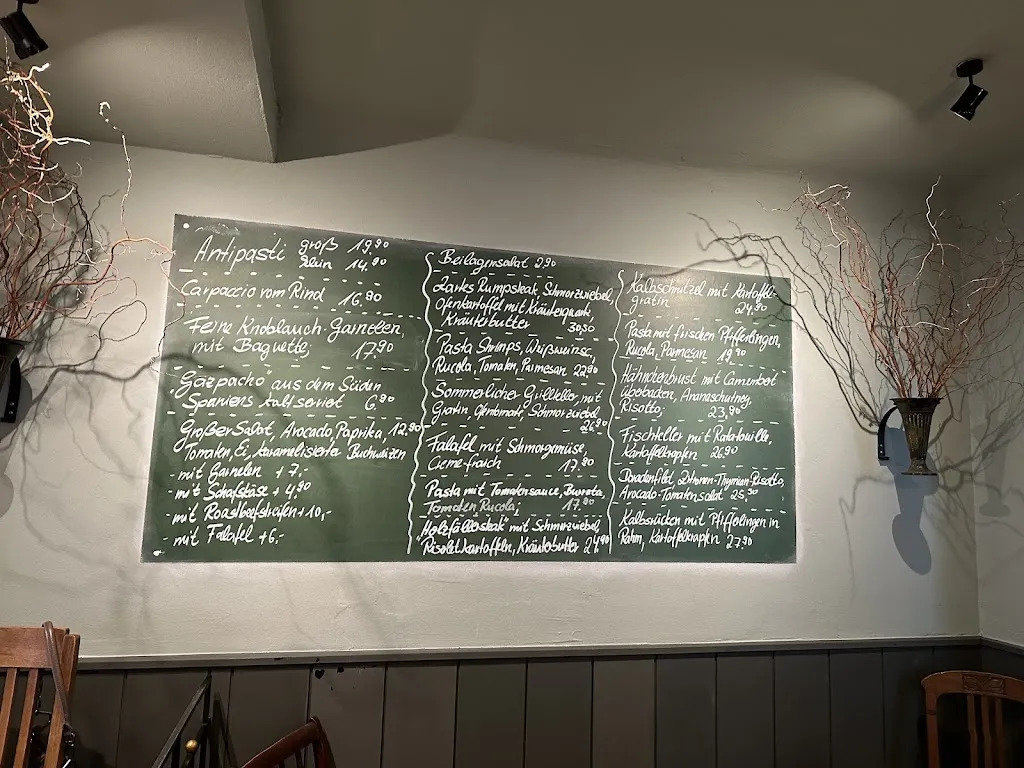 Antipasti groß 19,90
klein 14,90
Carpaccio vom Rind 16,90
Feine Knoblauch-Garnelen,
mit Baguette, 17,90
"Gazpacho" aus dem Süden
Spaniens kalt serviert 6,90
Großer Salat, Avocado, Paprika, 12,90
Tomaten, Ei, karamelisierte Buchweizen
- mit Garnelen + 7,-
- mit Schafskäse + 4,90
- mit Roastbeefstreifen + 10,-
- mit Falafel + 6,-
Beilagensalat 2,90
Rumpsteak Schmorzwiebel,
Ofenkartoffel mit Kräuterquark,
Kräuterbutter 30,50
Pasta Shrimps, Weißweinsc,
Rucola, Tomaten, Parmesan 22,90
Sommerlicher Grillteller, mit
Gratin, Schmorzwiebel
26,90
Falafel mit Schmorgemüse,
Creme-fraich 17,90
Pasta mit Tomatensauce, Burrata,
Tomaten, Rucola, 17,90
"Holzfällersteak" mit Schmorzwiebel,
Röstkartoffeln, Kräuterbutter 24,90
Kalbschnitzel mit Kartoffel-
gratin 24,90
Pasta mit frischen Pfifferlingen,
Rucola, Parmesan 19,90
Hähnchenbrust mit Camenbert
überbacken, Ananaschutney,
Risotto, 23,90
Fischteller mit Ratatouille,
Kartoffelkrapfen 26,90
Doradenfilet, Zitronen-Thymian-Risotto,
Avocado-Tomatensalat 25,50
Kalbsrücken mit Pfifferlingen in
Rahm, Kartoffelkrapfen 27,90